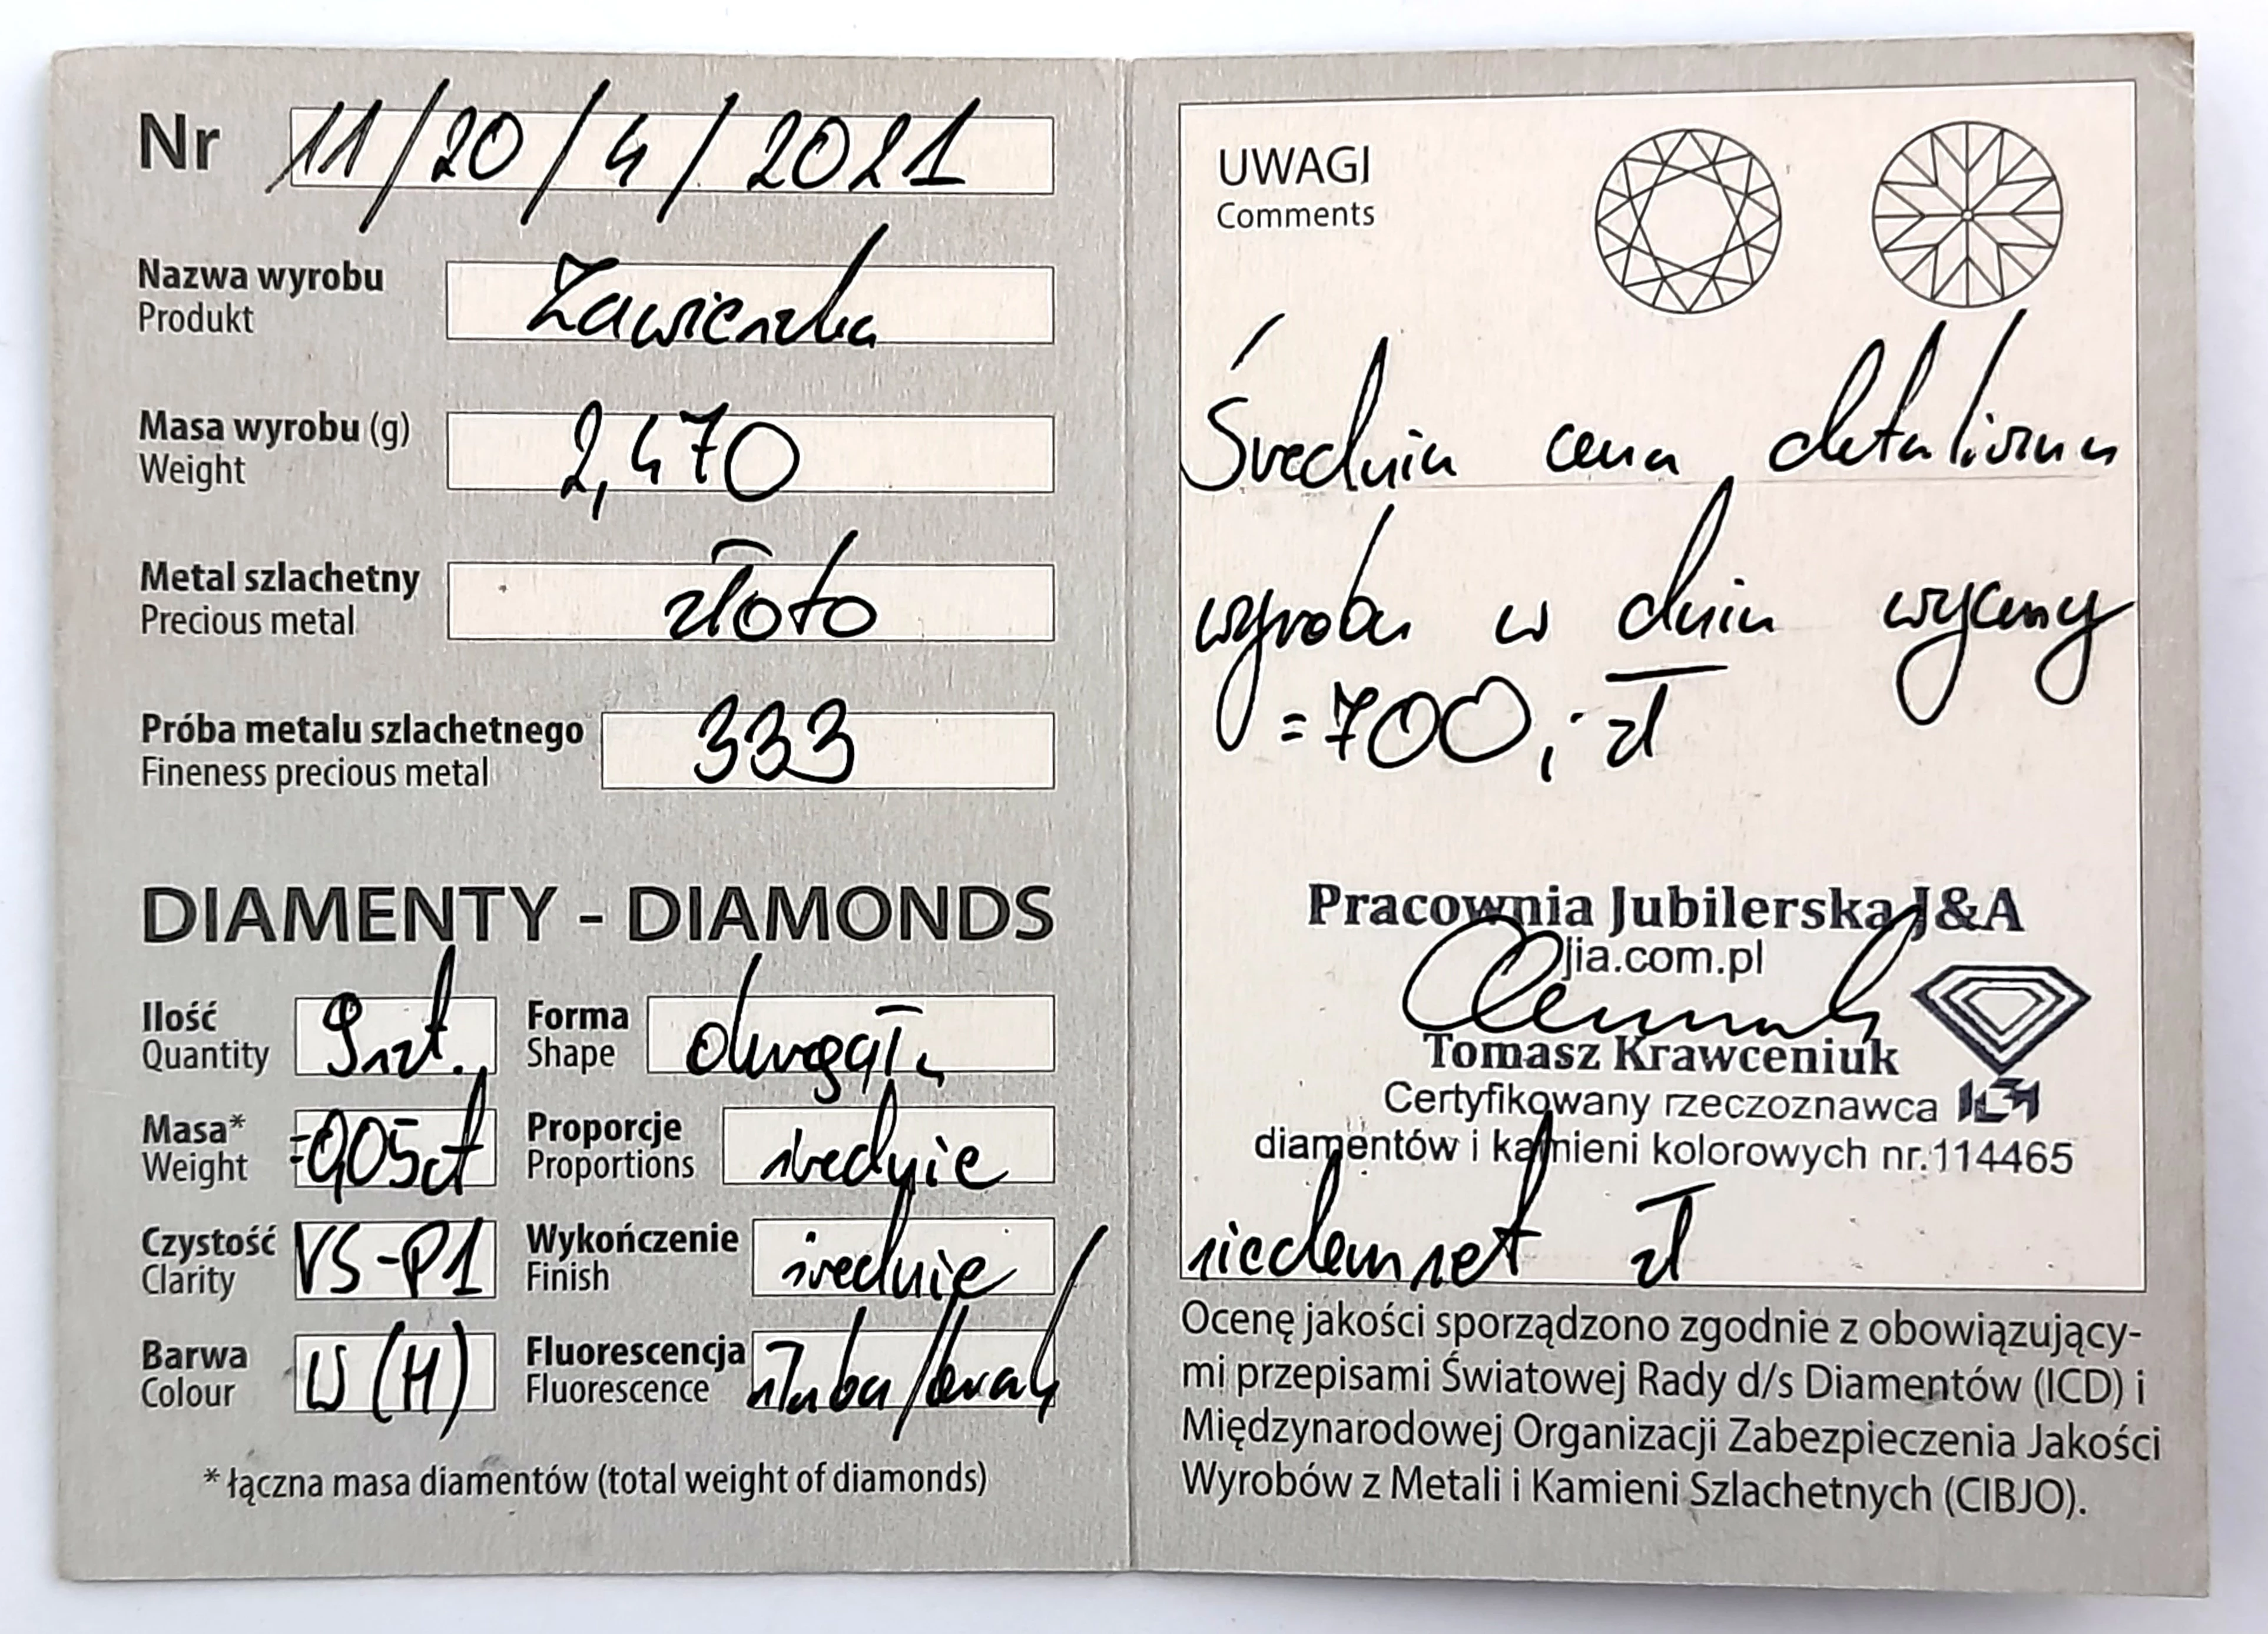 Nr 11/20/4/2021
Nazwa wyrobu Zawieszka
Produkt
Masa wyrobu (g) 2,470
Weight
Metal szlachetny złoto
Precious metal
Próba metalu szlachetnego 333
Fineness precious metal
DIAMENTY - DIAMONDS
Ilość 9szt. Forma okrągła
Quantity Shape
Masa* =0,05ct Proporcje średnie
Weight Proportions
Czystość VS-P1 Wykończenie średnie
Clarity Finish
Barwa W(H) Fluorescencja słaba/brak
Colour Fluorescence
* łączna masa diamentów (total weight of diamonds)
UWAGI
Comments
Średnia cena detaliczna
wyrobu w dniu wyceny
=700,- zł
Pracownia Jubilerska J&A
jia.com.pl
Tomasz Krawceniuk
Certyfikowany rzeczoznawca
diamentów i kamieni kolorowych nr.114465
siedemset zł
Ocenę jakości sporządzono zgodnie z obowiązujący-
mi przepisami Światowej Rady d/s Diamentów (ICD) i
Międzynarodowej Organizacji Zabezpieczenia Jakości
Wyrobów z Metali i Kamieni Szlachetnych (CIBJO).